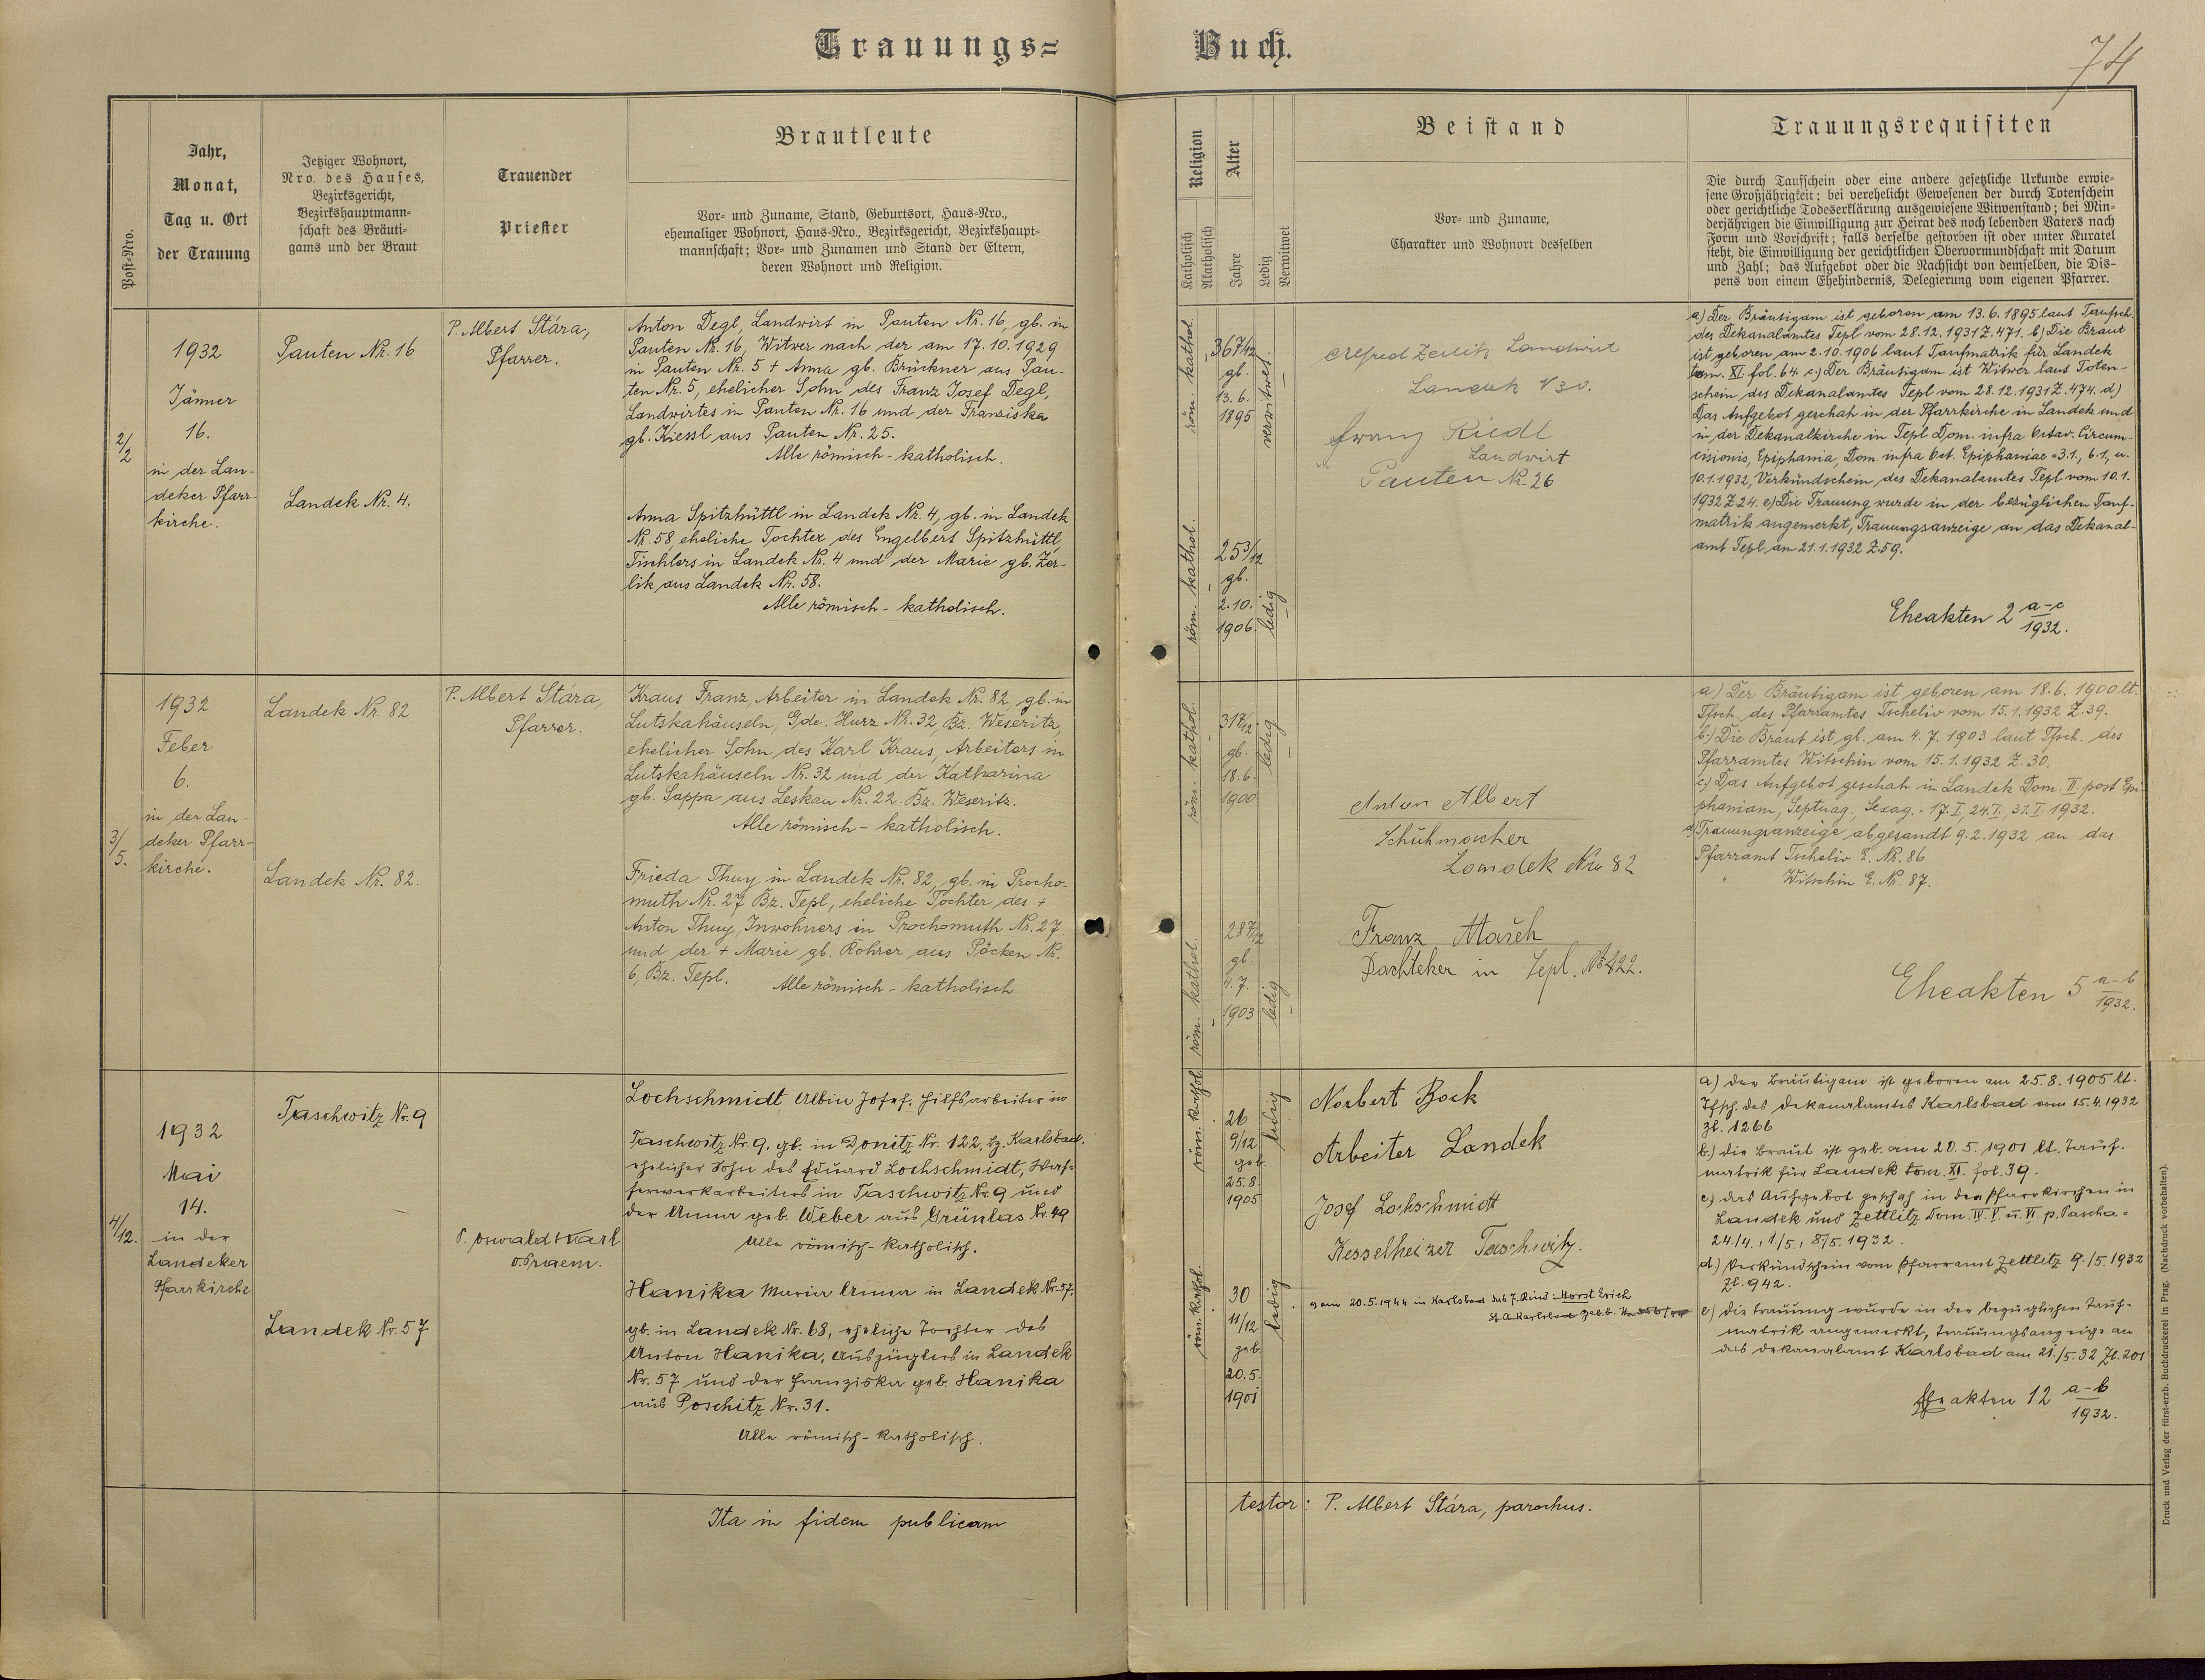 Trauungs=
Buch.
74
Post=Nro.
Jahr,
Monat,
Tag u. Ort
der Trauung
Jetziger Wohnort,
Nro. des Hauses,
Bezirksgericht,
Bezirkshauptmann=
schaft des Bräuti=
gams und der Braut
Trauender
Priester
Brautleute
Vor= und Zuname, Stand, Geburtsort, Haus=Nro.,
ehemaliger Wohnort, Haus=Nro., Bezirksgericht, Bezirkshaupt=
mannschaft; Vor= und Zunamen und Stand der Eltern,
deren Wohnort und Religion.
Religion
Katholisch
Akatholisch
Alter
Jahre
Ledig
Verwitwet
Beistand
Vor= und Zuname,
Charakter und Wohnort desselben
Trauungsrequisiten
Die durch Taufschein oder eine andere gesetzliche Urkunde erwie=
sene Großjährigkeit; bei verehelicht Gewesenen der durch Totenschein
oder gerichtliche Todeserklärung ausgewiesene Witwenstand; bei Min=
derjährigen die Einwilligung zur Heirat des noch lebenden Vaters nach
Form und Vorschrift; falls derselbe gestorben ist oder unter Kuratel
steht, die Einwilligung der gerichtlichen Obervormundschaft mit Datum
und Zahl; das Aufgebot oder die Nachsicht von demselben, die Dis=
pens von einem Ehehindernis, Delegierung vom eigenen Pfarrer.
2/2
1932
Jänner
16.
in der Lan-
deker Pfarr-
kirche.
Pauten Nr. 16
Landek Nr. 4.
P. Albert Stára,
Pfarrer.
Anton Degl, Landwirt in Pauten Nr. 16, gb. in
Pauten Nr. 16, Witwer nach der am 17.10.1929
in Pauten Nr. 5 + Anna gb. Brückner aus Pau-
ten Nr. 5, ehelicher Sohn des Franz Josef Degl,
Landwirtes in Pauten Nr. 16 und der Franziska
gb. Kiessl aus Pauten Nr. 25.
Alle römisch-katholisch.
Anna Spitzhüttl in Landek Nr. 4, gb. in Landek
Nr. 58 eheliche Tochter des Engelbert Spitzhüttl,
Tischlers in Landek Nr. 4 und der Marie gb. Zer-
lik aus Landek Nr. 58.
Alle römisch-katholisch.
röm. kathol.
36 7/12
gb.
13.6.
1895
verwitwet
röm. kathol.
25 3/12
gb.
2.10.
1906.
ledig
Alfred Zerlik Landwirt
Landek N 30.
Franz Riedl
Landwirt
Pauten Nr. 26
a) Der Bräutigam ist geboren am 13.6.1895 laut Taufsch.
des Dekanalamtes Tepl vom 28.12.1931 Z. 471. b) Die Braut
ist geboren am 2.10.1906 laut Taufmatrik für Landek
tom. XI fol. 64. c.) Der Bräutigam ist Witwer laut Toten-
schein des Dekanalamtes Tepl vom 28.12.1931 Z. 474. d)
Das Aufgebot geschah in der Pfarrkirche in Landek und
in der Dekanalkirche in Tepl Dom. infra Octav. Circum-
cisionis, Epiphania, Dom. infra Oct. Epiphaniae = 3.1., 6.1., u.
10.1.1932, Verkündschein des Dekanalamtes Tepl vom 10.1.
1932 Z. 24. e) Die Trauung wurde in der bezüglichen Tauf-
matrik angemerkt, Trauungsanzeige an das Dekanal-
amt Tepl am 21.1.1932 Z. 59.
Eheakten 2 a-c/1932.
3/5.
1932
Feber
6.
in der Lan-
deker Pfarr-
kirche.
Landek Nr. 82
Landek Nr. 82.
P. Albert Stára,
Pfarrer.
Kraus Franz, Arbeiter in Landek Nr. 82, gb. in
Lutskahäuseln, Gde. Hurz Nr. 32, Bz. Weseritz,
ehelicher Sohn des Karl Kraus, Arbeiters in
Lutskahäuseln Nr. 32 und der Katharina
gb. Sappa aus Leskau Nr. 22. Bz. Weseritz.
Alle römisch-katholisch.
Frieda Thuy in Landek Nr. 82, gb. in Procho-
muth Nr. 27 Bz. Tepl, eheliche Tochter des +
Anton Thuy, Inwohners in Prochomuth Nr. 27
und der + Marie gb. Rohrer aus Pöcken Nr.
6, Bz. Tepl. Alle römisch-katholisch
röm. kathol.
31 7/12
gb.
18.6.
1900
ledig
röm. kathol.
28 7/12
gb.
4.7.
1903
ledig
Anton Albert
Schuhmacher
Landek Nro 82
Franz Mašek
Dachteker in Tepl. No 422.
a) Der Bräutigam ist geboren am 18.6.1900 lt.
Tfsch. des Pfarramtes Tscheliv vom 15.1.1932 Z. 39.
b.) Die Braut ist gb. am 4.7.1903 laut Tfsch. des
Pfarramtes Witschin vom 15.1.1932 Z. 30.
c.) Das Aufgebot geschah in Landek Dom. II. post Epi-
phaniam, Septuag., Sexag. = 17.I, 24.I. 31.I. 1932.
d) Trauungsanzeige abgesandt 9.2.1932 an das
Pfarramt Tscheliv E. Nr. 86
" Witschin E. Nr. 87.
Eheakten 5 a-b/1932.
4/12.
1932
Mai
14.
in der
Landeker
Pfarrkirche
Taschwitz Nr. 9
Landek Nr. 57
P. Oswald Karl
o. Praem.
Lochschmidt Albin Josef, Hilfsarbeiter in
Taschwitz Nr. 9, gb. in Donitz Nr. 122, bz. Karlsbad,
ehelicher Sohn des Eduard Lochschmidt, Was-
serwerkarbeiters in Taschwitz Nr. 9 und
der Anna geb. Weber aus Grünlas Nr. 49
Alle römisch-katholisch.
Hanika Maria Anna in Landek Nr. 57,
gb. in Landek Nr. 68, eheliche Tochter des
Anton Hanika, Auszüglers in Landek
Nr. 57 und der Franziska geb. Hanika
aus Poschitz Nr. 31.
Alle römisch-katholisch.
röm. kathol.
26
9/12
geb.
25.8.
1905
ledig
röm. kathol.
30
11/12
geb.
20.5.
1901
ledig
Norbert Bock
Arbeiter Landek
Josef Lochschmidt
Kesselheizer Taschwitz.
am 20.5.1944 in Karlsbad das 7. Kind: Horst Erich
St. A. Karlsbad Geb. b.
a) Der Bräutigam ist geboren am 25.8.1905 lt.
Tfsch. des Dekanalamtes Karlsbad vom 15.4.1932
Zl. 1266
b.) Die Braut ist geb. am 20.5.1901 lt. Tauf-
matrik für Landek tom. XI. fol. 39.
c) das Aufgebot geschah in den Pfarrkirchen in
Landek und Zettlitz Dom. IV. V. u. VI. p. Pascha =
24./4., 1/5., 8/5. 1932.
d.) Verkündschein vom Pfarramt Zettlitz 9./5. 1932
Zl. 942.
e) die Trauung wurde in der bezüglichen Tauf-
matrik angemerkt, Trauungsanzeige an
das Dekanalamt Karlsbad am 21./5. 32 Zl. 201
Eheakten 12 a-b/1932.
Ita in fidem publicam
testor: P. Albert Stára, parochus.
Druck und Verlag der fürst-erzb. Buchdruckerei in Prag. (Nachdruck vorbehalten).